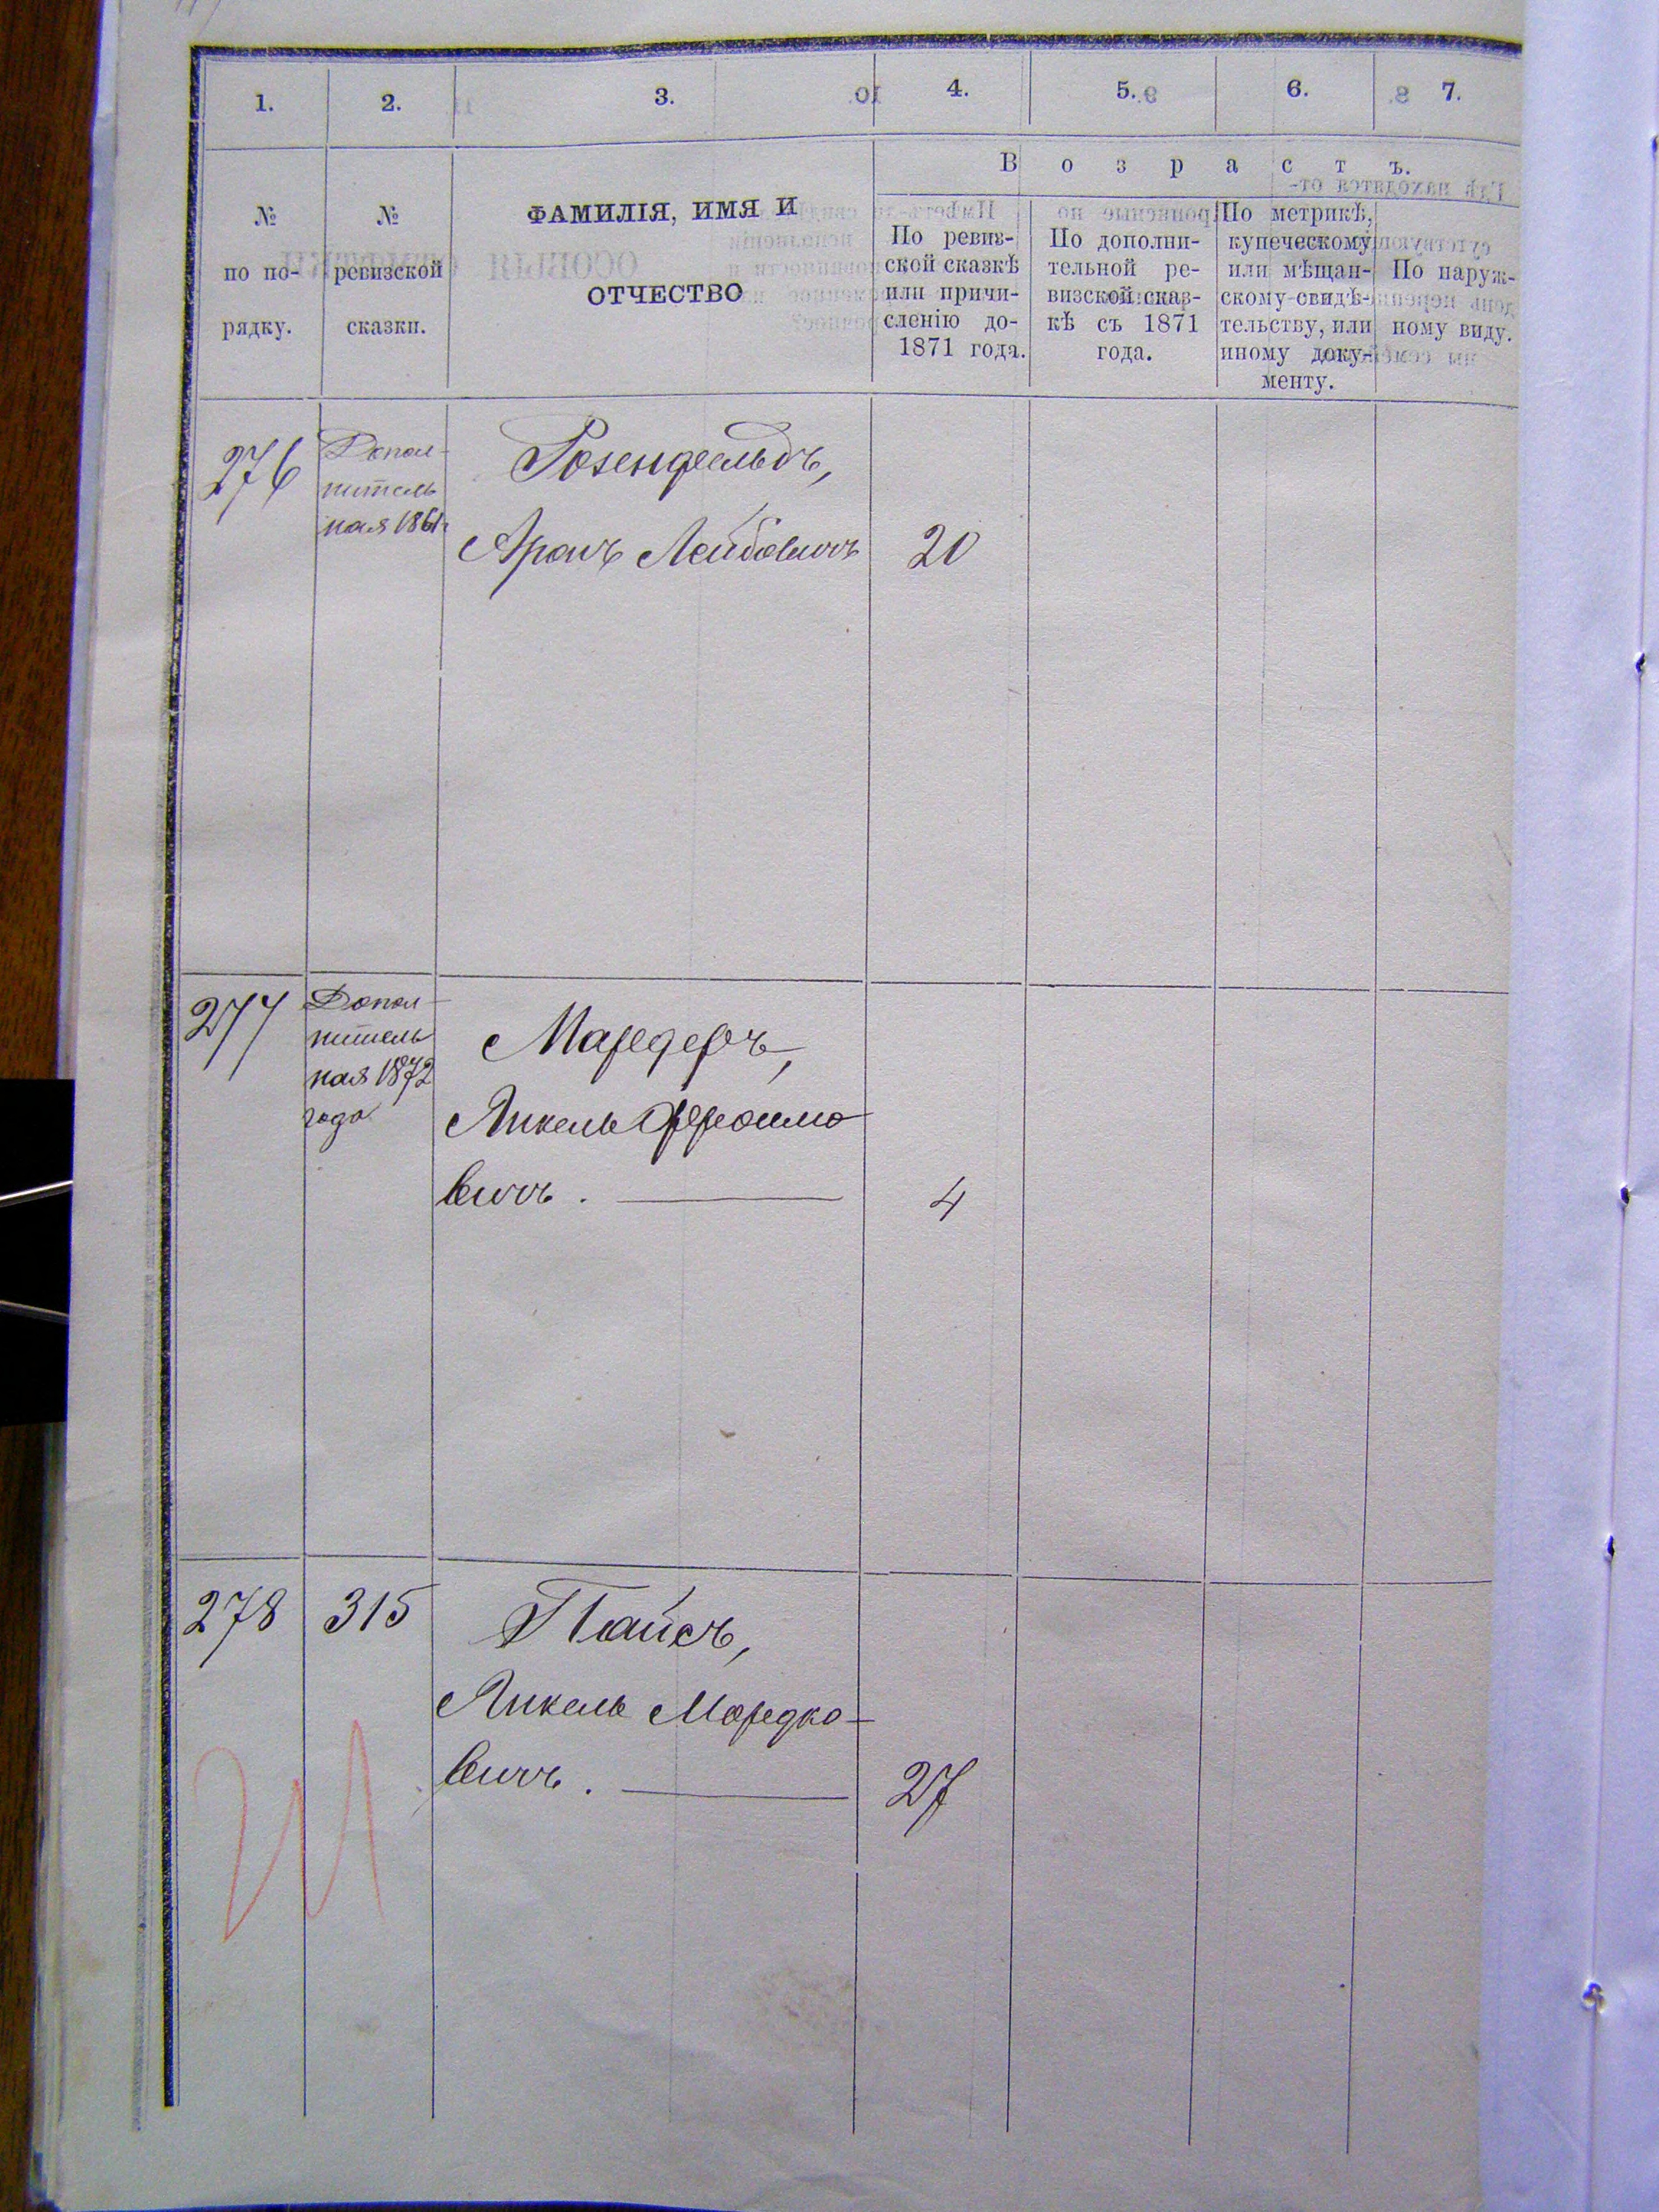 1. 2. 3. 4. 5. 6. 7.
В о з р а с т ъ.
№ по по-рядку.
№ ревизской сказки.
ФАМИЛІЯ, ИМЯ И
ОТЧЕСТВО
По ревиз-
ской сказкѣ
или причи-
сленію до-
1871 года.
По дополни-
тельной ре-
визской сказ-
кѣ съ 1871
года.
По метрикѣ,
купеческому
или мѣщан-
скому свидѣ-
тельству, или
иному доку-
менту.
По наруж-
ному виду.
276
Допол-
нитель
ная 1861г
Розенфельдъ,
Аронъ Лейбовичъ 20
277
Допол-
нитель
ная 1872
года
Мардеръ,
Янкель Фроимо
вичъ. 4
278 315
Пайсъ,
Янкель Мордко-
вичъ. 27